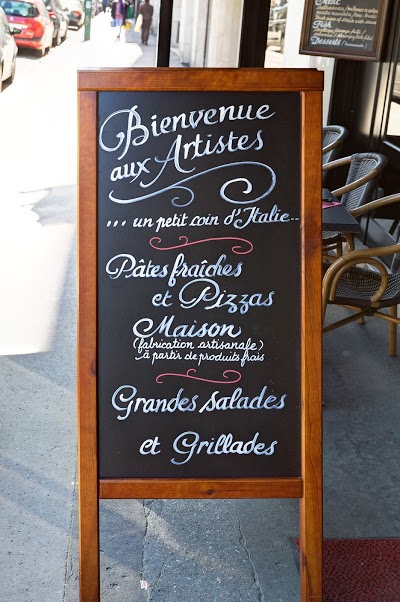 Bienvenue
aux Artistes
... un petit coin d'Italie...
Pâtes fraîches
et Pizzas
Maison
(fabrication artisanale)
à partir de produits frais
Grandes salades
et Grillades
Fish
Desserts